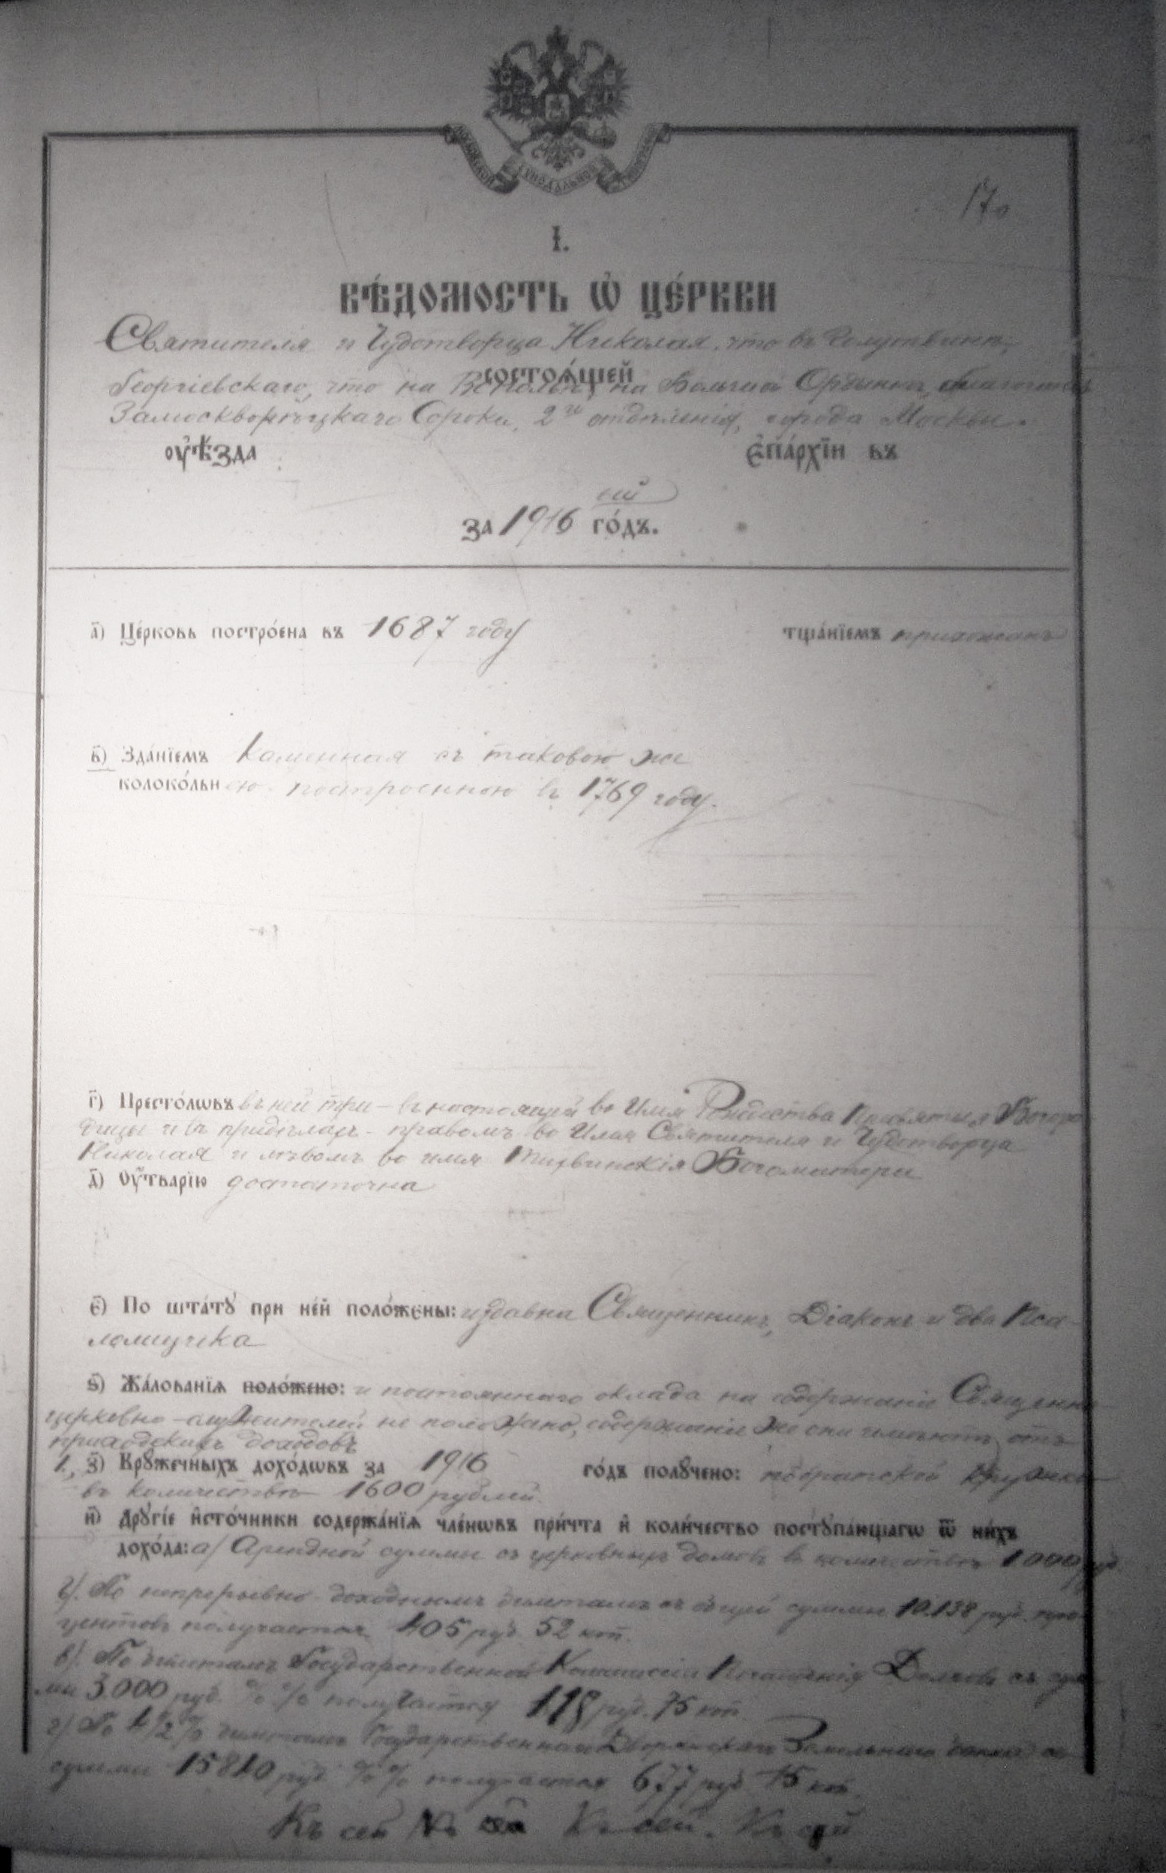 170
І.
ВѢ́ДОМОСТЬ Ѡ҆ ЦЕ́РКВИ
Святителя и Чудотворца Николая, что въ Голутвинѣ,
состоѧ́щей
Георгіевскаго, что на Вспольѣ, на Большой Ордынкѣ, благочинія
Замоскворѣцкаго Сорока, 2го отдѣленія, города Москвы.
оуѣ́зда є҆па́рхїи въ
за 1916 ый го́дъ.
а҃) Це́рковь постро́ена въ 1687 году тща́нїемъ прихожанъ
в҃) Зда́нїемъ каменная съ таковою же
колоко́льнею построенною въ 1769 году.
г҃) Престо́лωвъ въ ней три - въ настоящей во Имя Рождества Пресвятыя Богоро
дицы и въ придѣлахъ - правомъ во Имя Святителя и Чудотворца
Николая и лѣвомъ во имя Тихвинскія Богоматери
д҃) Оу҆́тварїю достаточна
є҃) По шта́ту при не́й поло́жены: издавна Священникъ, Діаконъ и два Пса-
ломщика
ѕ҃) Жа́лованїѧ поло́жено: и постояннаго оклада на содержаніе Священно
церковно-служителей не положено, содержаніе же они имѣютъ отъ
приходскихъ доходовъ
з҃) Крꙋ́жечныхъ дохо́дωвъ за 1916 го́дъ полꙋ́чено: братской кружки
въ количествѣ 1600 рублей.
и҃) Дрꙋгі́е и҆сто́чники содержа́нїѧ чле́нωвъ при́чта и҆ коли́чество постꙋпа́ющагω ѿ ни́хъ
дохо́да: а) Арендной суммы съ церковныхъ домовъ въ количествѣ 1.000 руб.
б). По непрерывно-доходнымъ билетамъ съ общей суммы 10.138 руб. про-
центовъ получается 405 руб. 52 коп.
в). По билетамъ Государственной Коммиссіи Погашенія Долговъ съ сум
мы 3.000 руб. %% получается 118 руб. 75 коп.
г) По 4½% билетамъ Государственнаго Дворянскаго Земельнаго банка съ
суммы 15840 руб. %% получается 677 руб. 15 коп.
Къ сей Къ сей. Къ сей